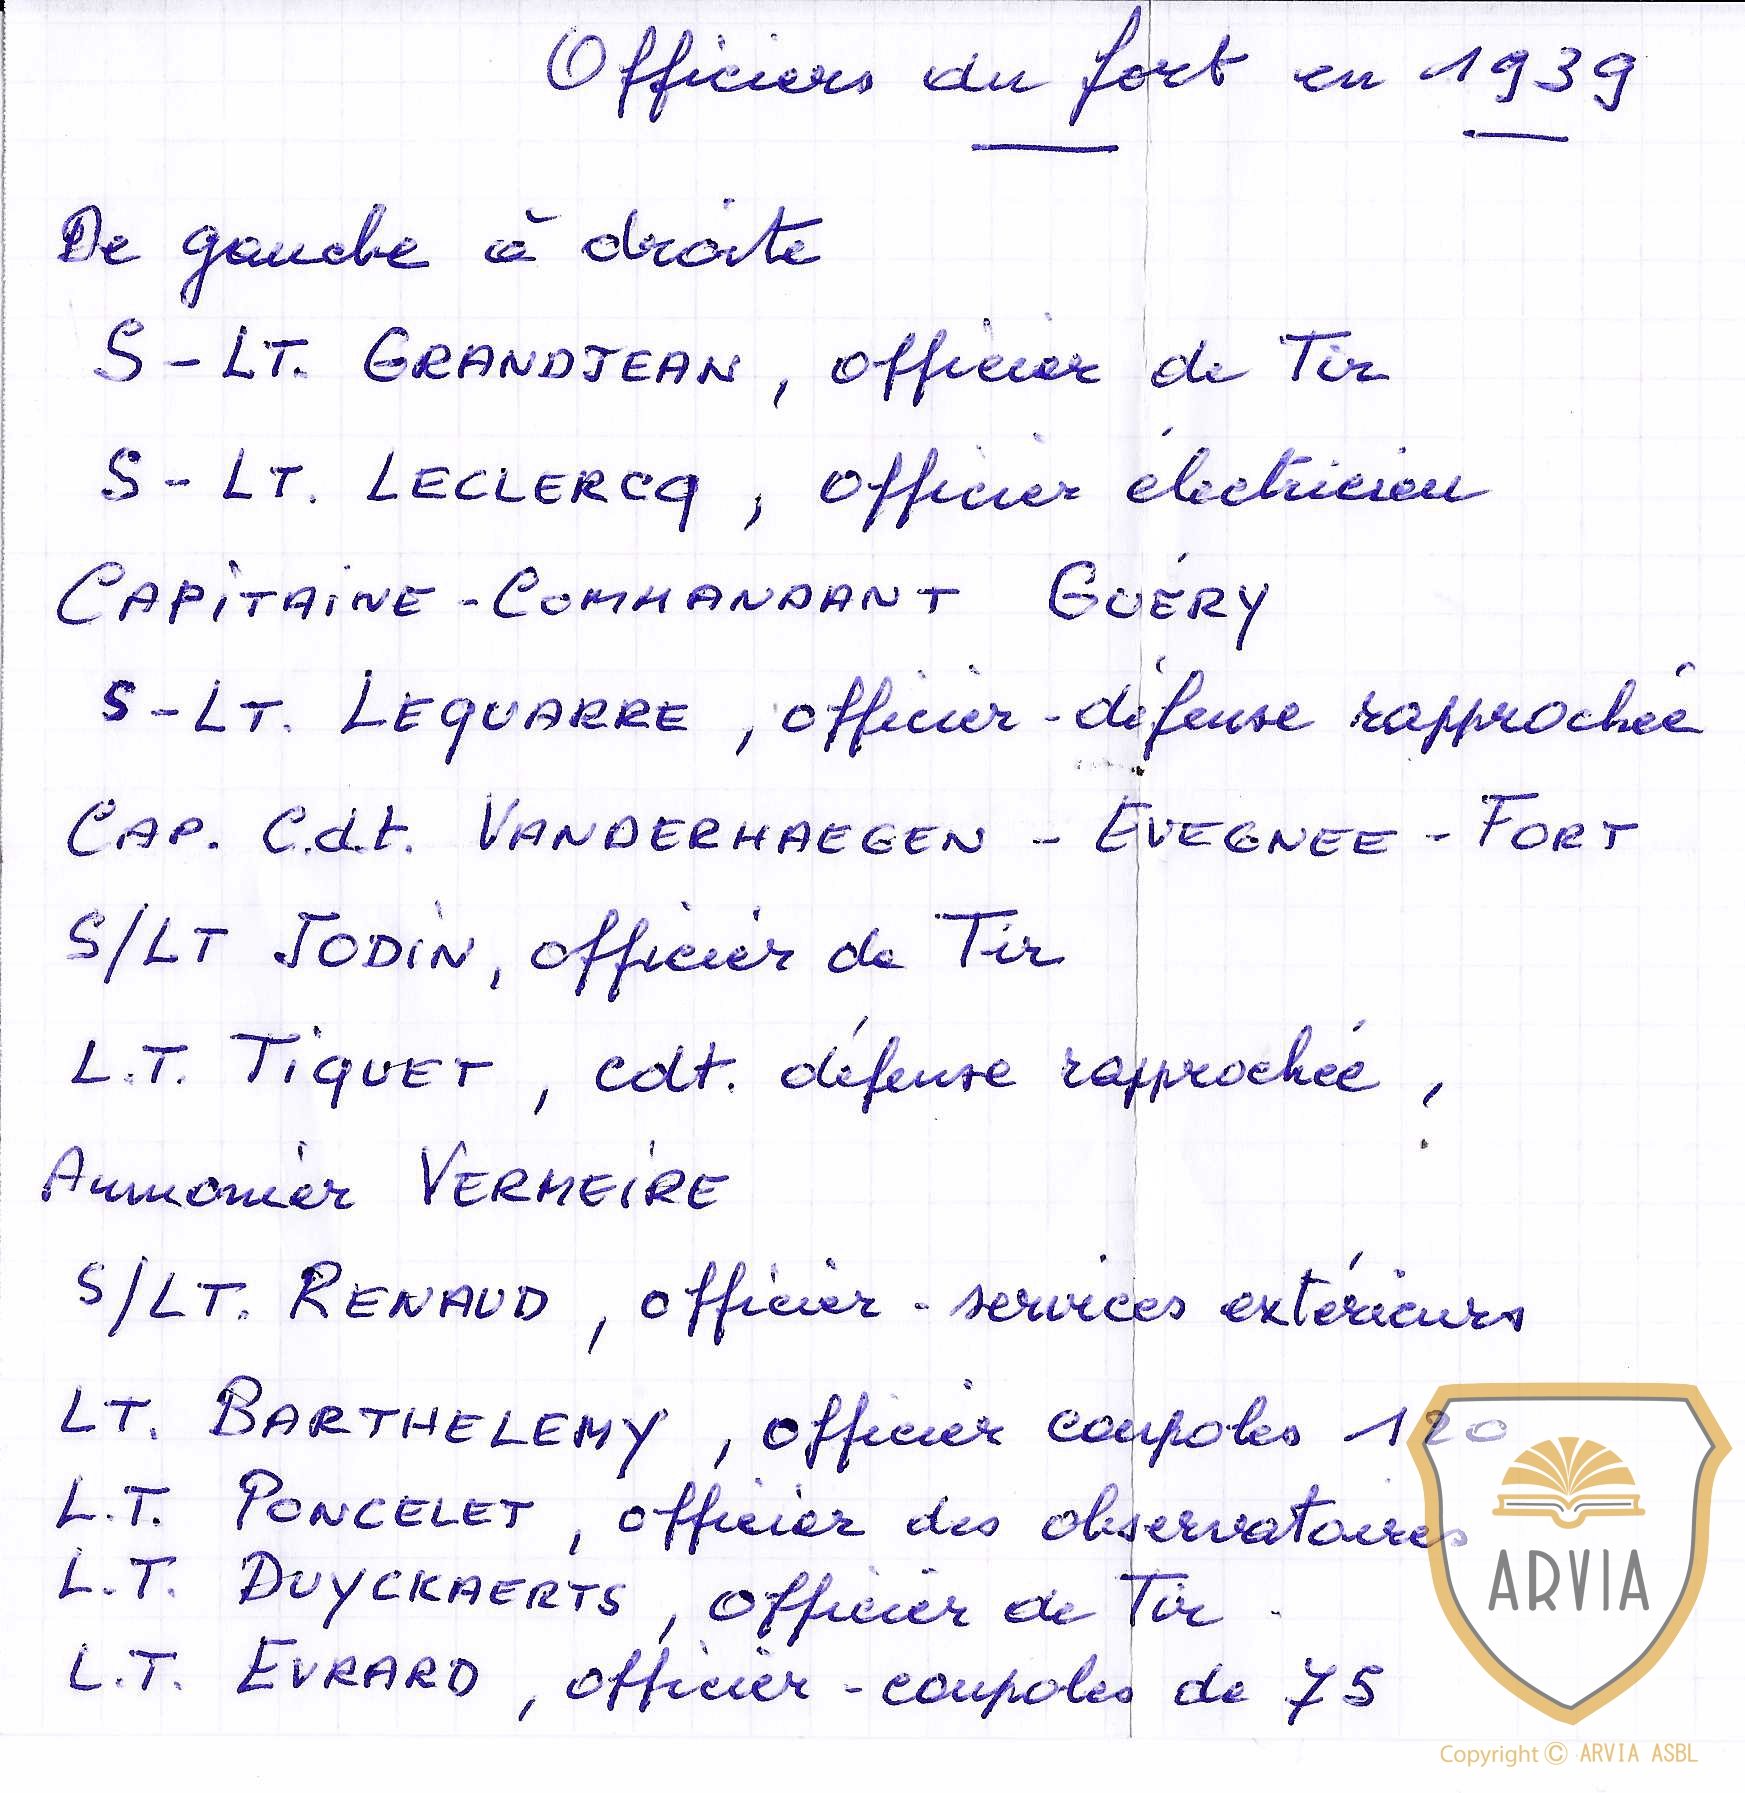 Officiers du fort en 1939
De gauche à droite
S-LT. GRANDJEAN, officier de Tir
S-LT. LECLERCQ, officier électricien
CAPITAINE-COMMANDANT GUÉRY
S-LT. LEQUARRE, officier-défense rapprochée
CAP. Cdt. VANDERHAEGEN - EVEGNEE-FORT
S/LT JODIN, officier de Tir
L.T. TIQUET, cdt. défense rapprochée,
Aumonier VERMEIRE
S/LT. RENAUD, officier-services extérieurs
LT. BARTHELEMY, officier coupoles 120
L.T. PONCELET, officier des observatoires
L.T. DUYCKAERTS, officier de Tir.
L.T. EVRARD, officier-coupoles de 75
ARVIA
Copyright © ARVIA ASBL